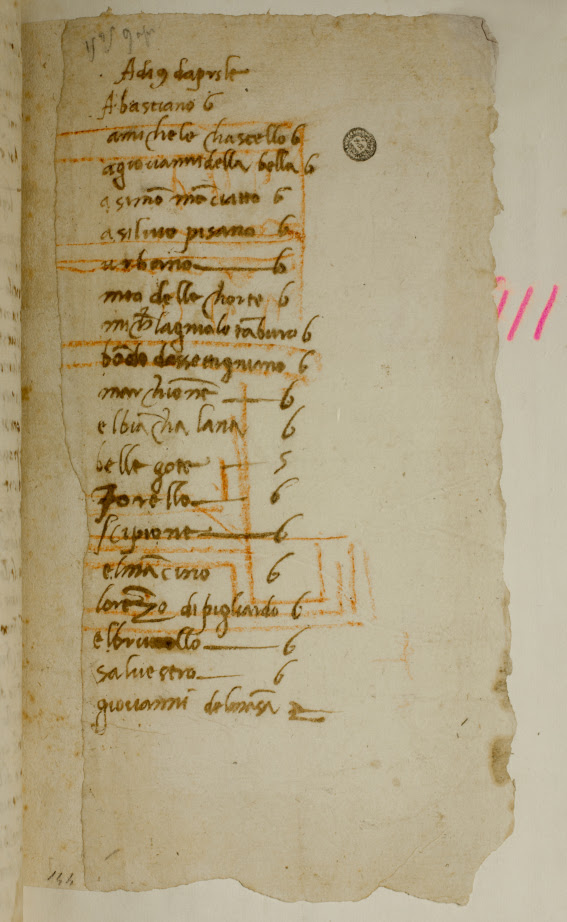 1525 9 apr
Adi 9 daprile
A bastiano 6
a mi chele chastello 6
a giovanni della bella 6
a simō mō ciatto 6
a silvio pisano 6
urbano 6
meo delle chorte 6
lagniolo tāburo 6
bōdo dassectigniano 6
marchionē 6
elbiācha lana 6
belle gote 5
Zorello 6
scipione 6
elmācino 6
lorēzo di pigliardo 6
6
salvestro 6
giovanni
144